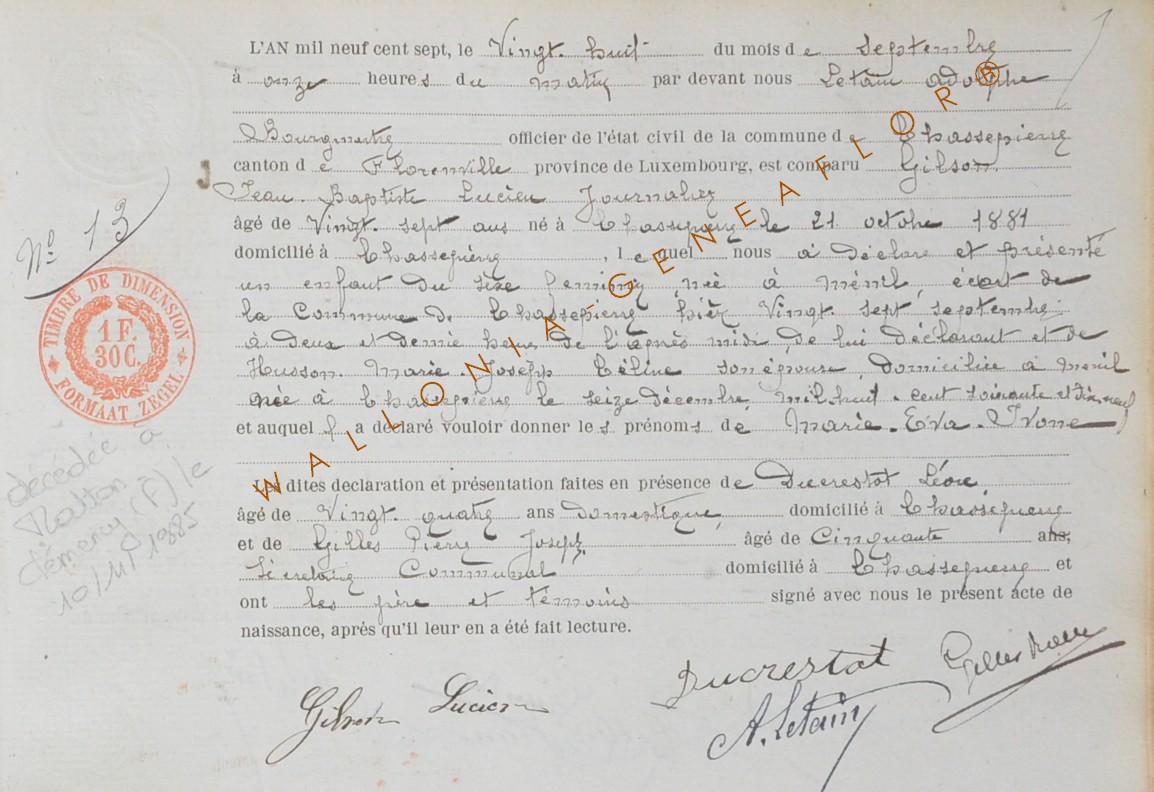 L'AN mil neuf cent sept, le Vingt-huit du mois de Septembre
à onze heures du matin par devant nous Letain Adolphe
Bourgmestre officier de l'état civil de la commune de Chassepierre
canton de Florenville province de Luxembourg, est comparu Gilson
Jean-Baptiste Lucien Journalier
âgé de Vingt-sept ans né à Chassepierre le 21 octobre 1881
domicilié à Chassepierre, lequel nous a déclaré et présenté
un enfant du sexe féminin, née à Ménil, écart de
la Commune de Chassepierre hier Vingt sept septembre
à Deux et demie heures de l'après midi, de lui déclarant et de
Husson Marie-Joseph Céline son épouse, domiciliée à Menil
née à Chassepierre le seize décembre mil huit-cent soixante et dix neuf
et auquel il a déclaré vouloir donner les prénoms de Marie-Eva-Ivone
Les dites declaration et présentation faites en présence de Ducrestot Léon,
âgé de Vingt-quatre ans Domestique, domicilié à Chassepierre
et de Gilles Pierre Joseph, âgé de Cinquante ans,
Secrétaire Communal domicilié à Chassepierre et
ont les père et témoins signé avec nous le présent acte de
naissance, après qu'il leur en a été fait lecture.
Gilson Lucien
Ducrestot
A. Letain
N° 13
TIMBRE DE DIMENSION
1 F.
30 C.
FORMAAT ZEGEL
décédée à
Clémency (F) le
WALLONIA-GENEAFLOR®